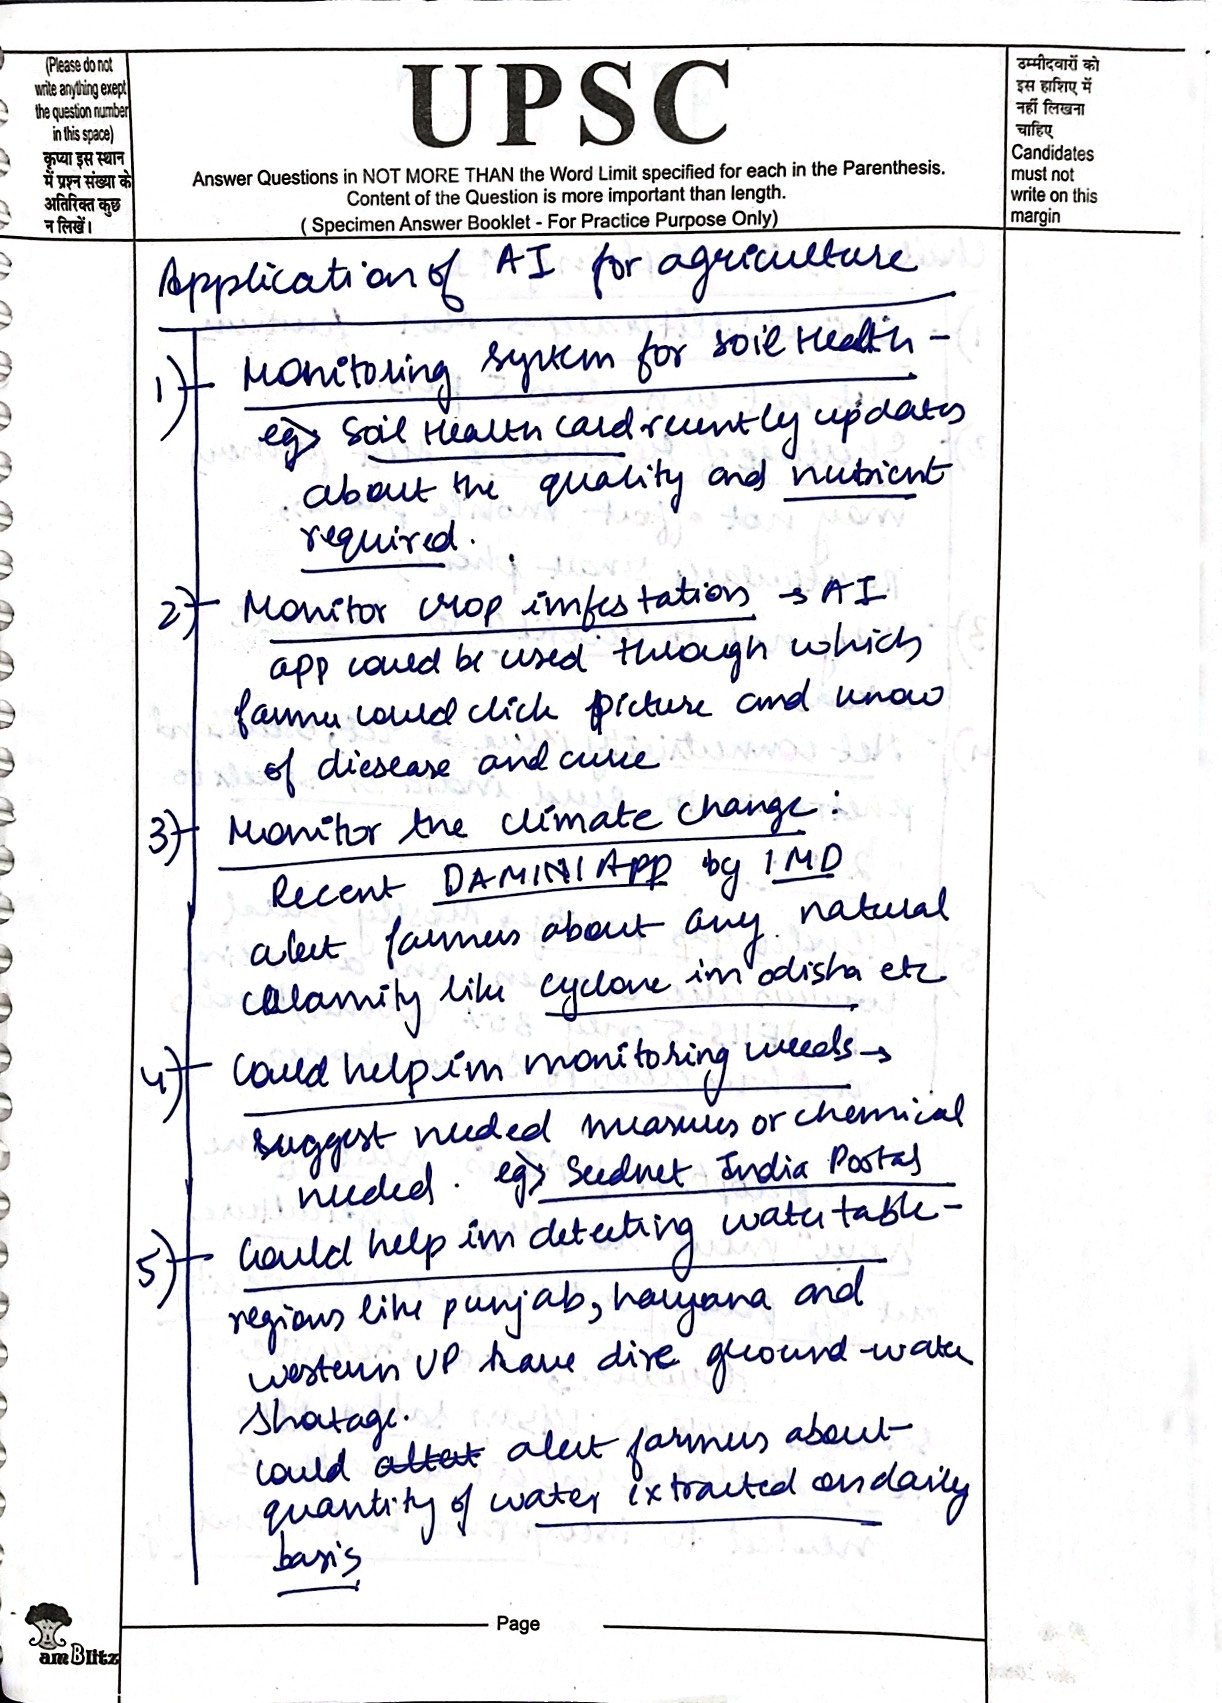 (Please do not
write anything exept
the question number
in this space)
कृप्या इस स्थान
में प्रश्न संख्या के
अतिरिक्त कुछ
न लिखें।
UPSC
Answer Questions in NOT MORE THAN the Word Limit specified for each in the Parenthesis.
Content of the Question is more important than length.
( Specimen Answer Booklet - For Practice Purpose Only)
उम्मीदवारों को
इस हाशिए में
नहीं लिखना
चाहिए
Candidates
must not
write on this
margin
Application of AI for agriculture
1) Monitoring system for soil Health -
eg> Soil Health card recently updates
about the quality and nutrient
required.
2) Monitor crop imfestation → AI
app could be used through which
farmer could click picture and know
of diesease and cure
3) Monitor the climate change :
Recent DAMINI APP by IMD
alert farmers about any natural
calamity like cyclone in odisha etc
4) Could help in monitoring weeds →
suggest needed measures or chemical
needed. eg> Seednet India Portal
5) Could help in detecting water table -
regions like punjab, haryana and
western UP have dire ground-water
shortage.
could alert farmers about
quantity of water extracted on daily
basis
Page
am Blitz